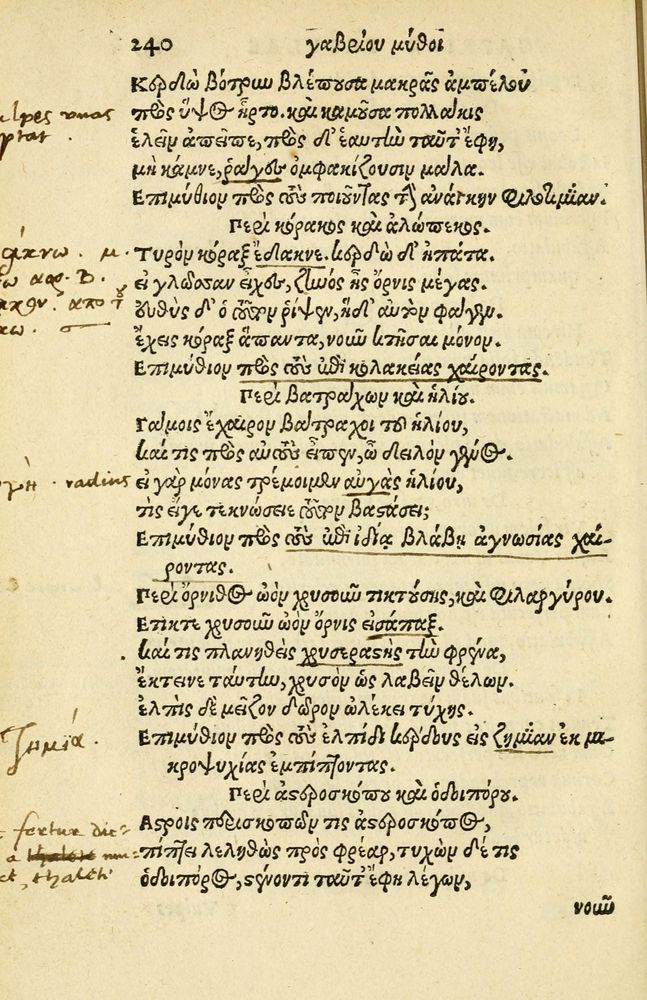 240 γαβρίου μῦθοι
Κερδὼ βότρυν βλέπουσα μακρᾶς ἀμπέλου
πρὸς ὕψος ἦρτο. καὶ καμοῦσα πολλάκις
ἑλεῖν ἀπεῖπε, πρὸς δ' ἑαυτὴν ταῦτ' ἔφη,
μὴ κάμνε, ῥάγες ὀμφακίζουσιν μάλα.
Επιμύθιον πρὸς τοὺς ποιοῦντας τὴν ἀνάγκην φιλοτιμίαν.
Περὶ κόρακος καὶ ἀλώπεκος.
Τυρὸν κόραξ ἔδακνε. κερδὼ δ' ἠπάτα.
εἰ γλῶσσαν εἶχες, ζηνὸς ἦς ὄρνις μέγας.
εὐθὺς δ' ὁ τοῦτον ῥίψεν, ἡ δ' αὐτὸν φάγεν.
ἔχεις κόραξ ἅπαντα, νοῦν κτῆσαι μόνον.
Επιμύθιον πρὸς τοὺς ἐπὶ κολακείας χαίροντας.
Περὶ βατράχων καὶ ἡλίου.
Γάμοις ἔχαιρον βάτραχοι τοῦ ἡλίου,
καί τις πρὸς αὐτοὺς εἶπεν, ὦ δειλὸν γένος.
εἰ γὰρ μόνας τρέμοιμεν αὐγὰς ἡλίου,
τίς εἴγε τεκνώσειε τοῦτον βαστάσει;
Επιμύθιον πρὸς τοὺς ἐπὶ ἰδίᾳ βλάβῃ ἀγνωσίας χαί-
ροντας.
Περὶ ὄρνιθος ὠὸν χρυσοῦν τικτούσης, καὶ φιλαργύρου.
Ετικτε χρυσοῦν ὠὸν ὄρνις εἰσάπαξ.
καί τις πλανηθεὶς χρυσεραστὴς τὴν φρένα,
ἔκτεινε ταύτην, χρυσὸν ὡς λαβεῖν θέλων.
ἐλπὶς δὲ μεῖζον δῶρον ὠλέκει τύχης.
Επιμύθιον πρὸς τοὺς ἐλπίδι κέρδους εἰς ζημίαν ἐκ μα-
κροψυχίας ἐμπίπτοντας.
Περὶ ἀστροσκόπου καὶ ὁδοιπόρου.
Αστροις περισκοπῶν τις ἀστροσκόπος,
πίπτει λεληθὼς πρὸς φρέαρ, τυχὼν δέ τις
ὁδοιπόρος, στένοντι ταῦτ' ἔφη λέγων,
νοῦν
ulpes uvas
ptat.
radius
ζημιά.
fertur dic-